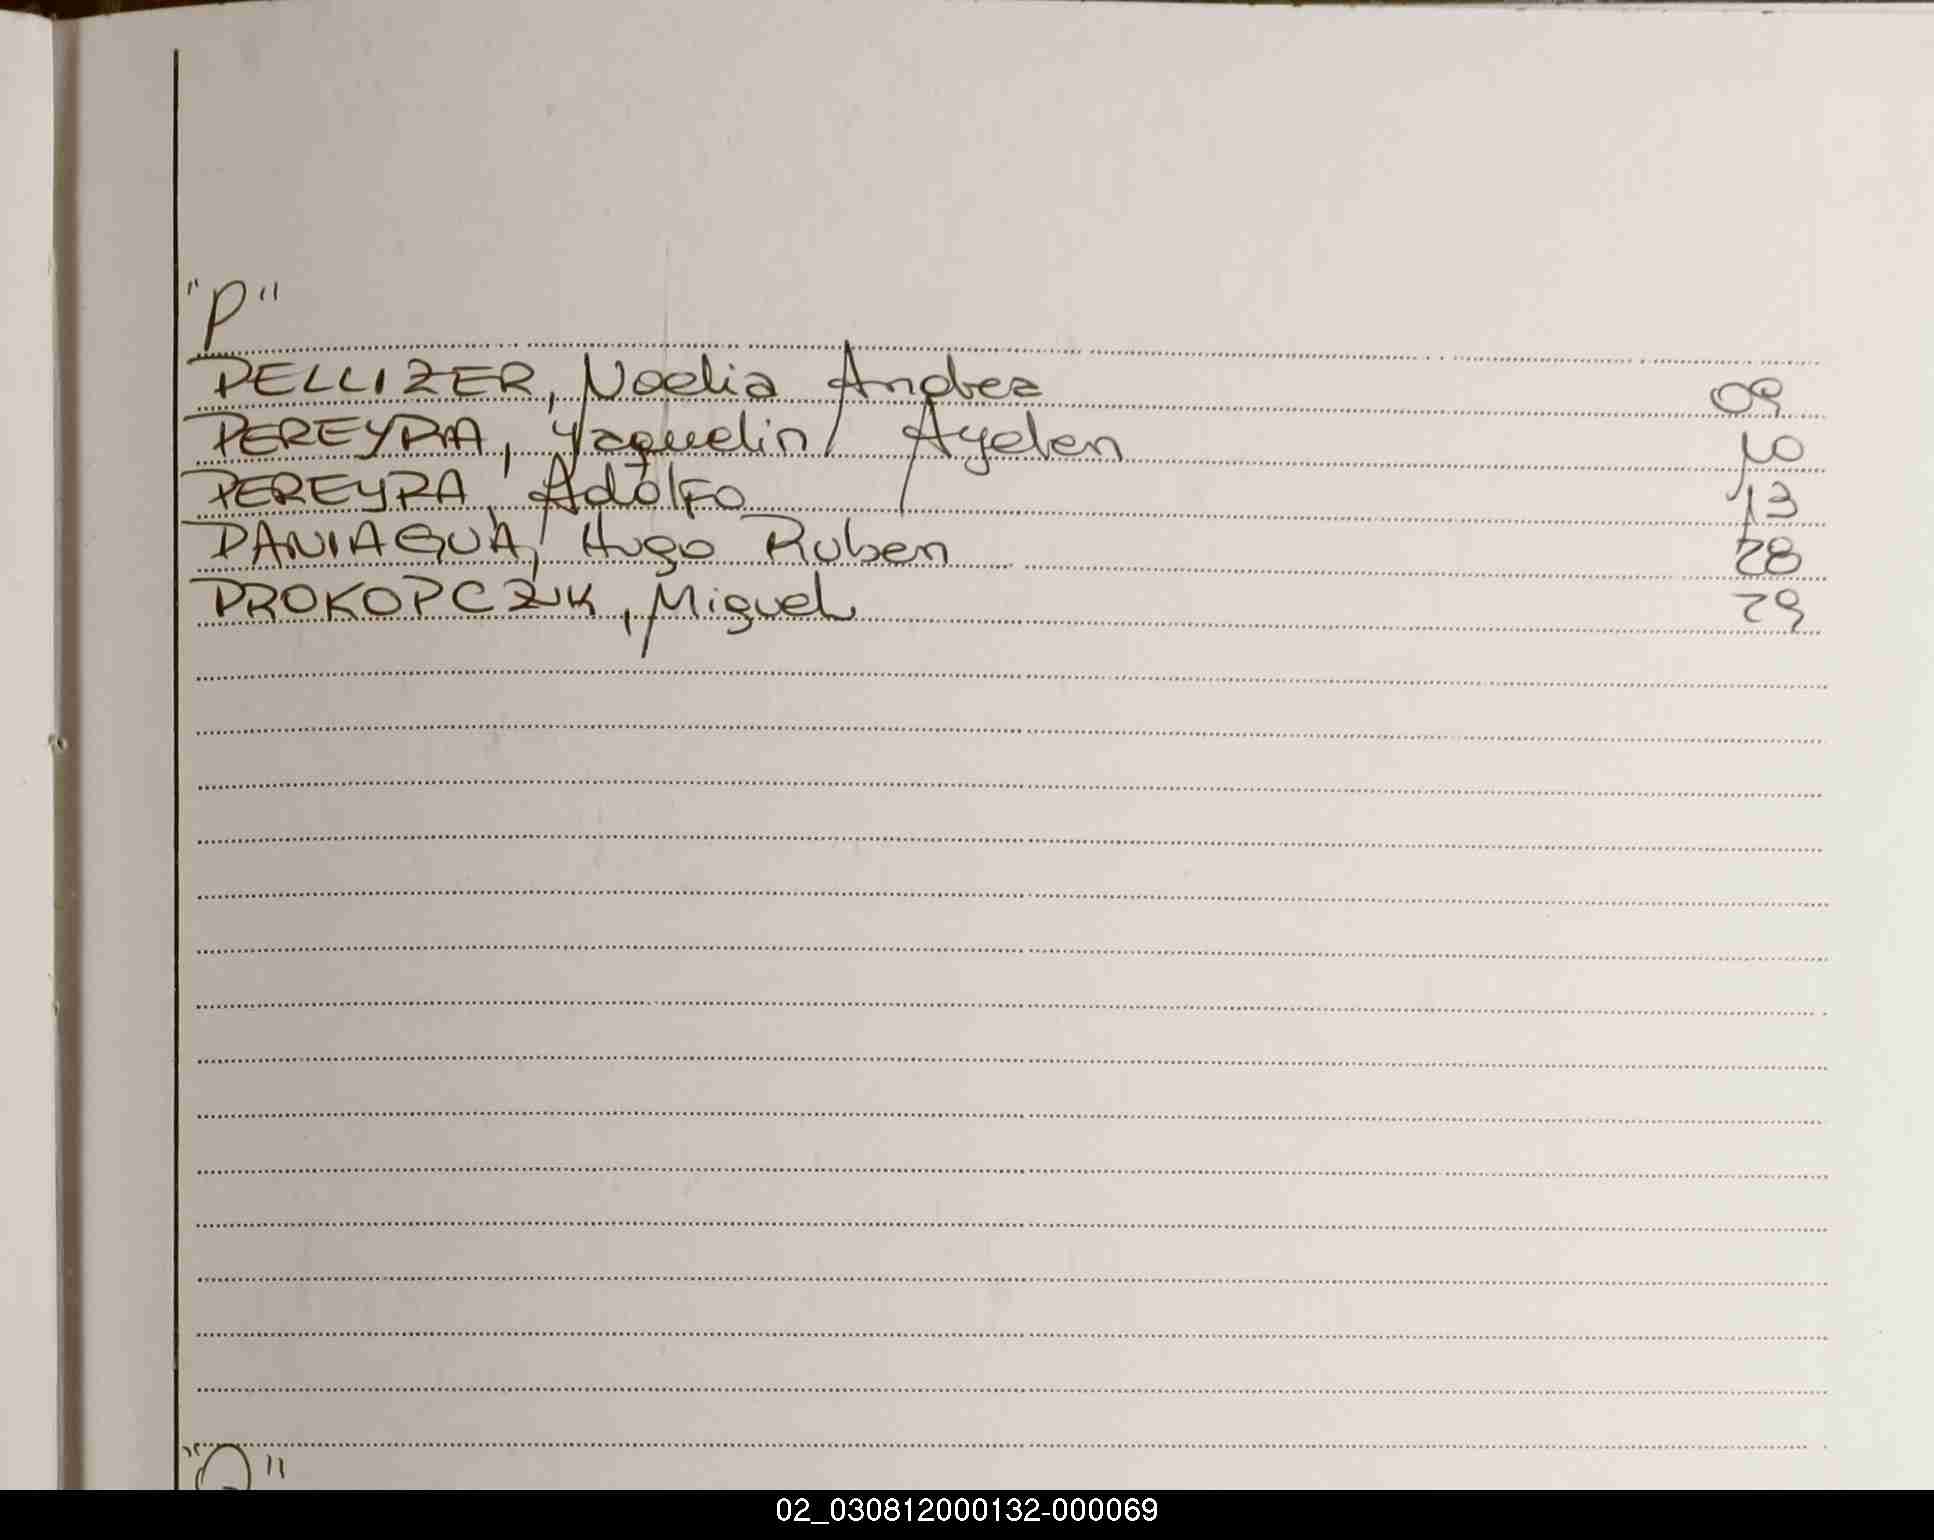 "P"
PELLIZER, Noelia Andrea 09
PEREYRA, Yaquelin Ayelen 10
PEREYRA, Adolfo 13
PANIAGUA, Hugo Ruben 28
PROKOPCZUK, Miguel 29
"Q"
02_030812000132-000069